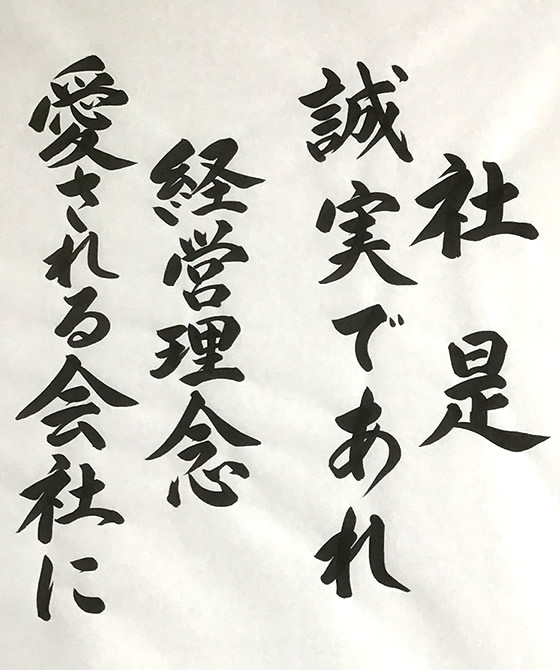 社是
誠実であれ
経営理念
愛される会社に